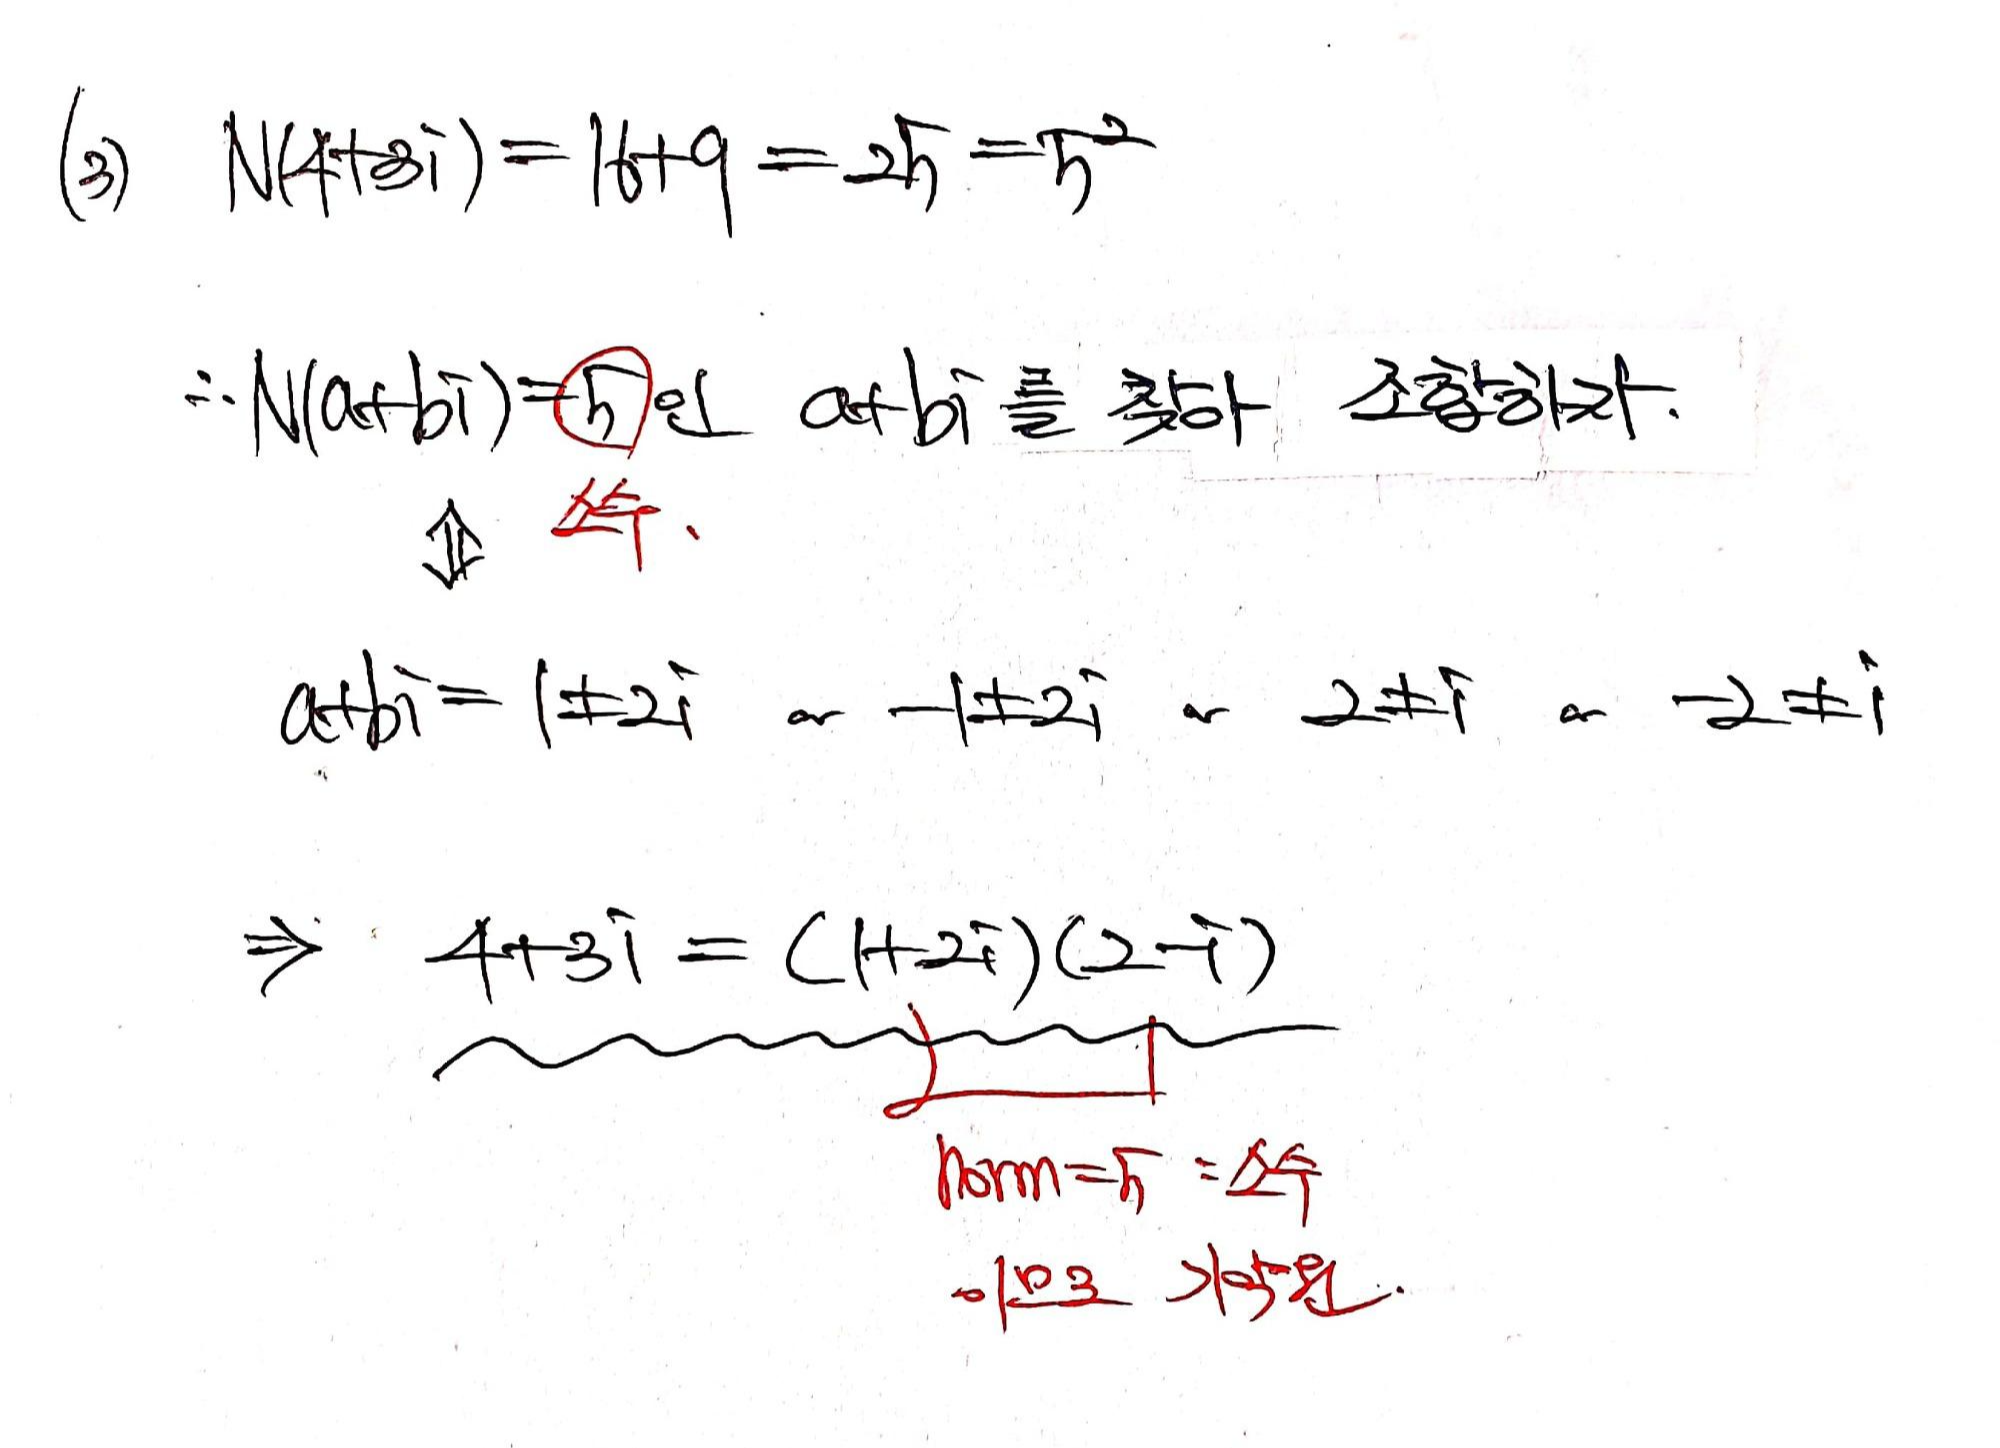 (3) N(4+3i) = 16+9 = 25 = 5²
∴ N(a+bi) = 5인 a+bi를 찾아 조합하자.
⇕ 소수.
a+bi = 1±2i or -1±2i or 2±i or -2±i
⇒ 4+3i = (1+2i)(2-i)
norm=5 = 소수
이므로 기약원.